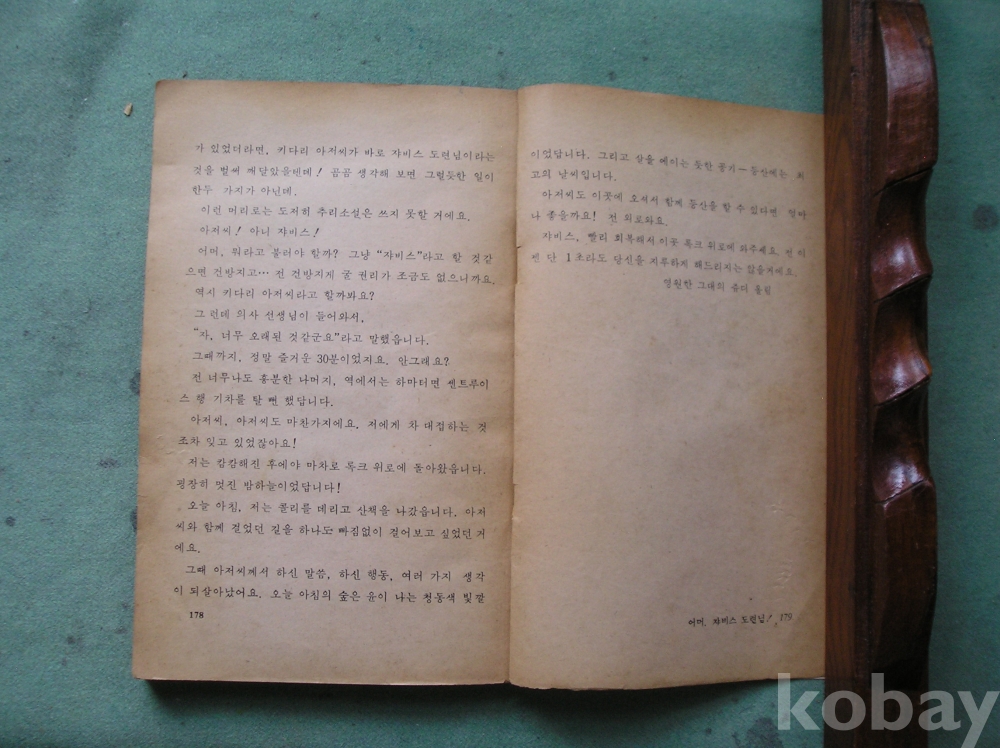 가 있었더라면, 키다리 아저씨가 바로 쟈비스 도련님이라는
것을 벌써 깨달았을텐데! 곰곰 생각해 보면 그럴듯한 일이
한두 가지가 아닌데.
이런 머리로는 도저히 추리소설은 쓰지 못할 거에요.
아저씨! 아니 쟈비스!
어머, 뭐라고 불러야 할까? 그냥 “쟈비스”라고 할 것같
으면 건방지고… 전 건방지게 굴 권리가 조금도 없으니까요.
역시 키다리 아저씨라고 할까봐요?
그런데 의사 선생님이 들어와서,
“자, 너무 오래된 것같군요”라고 말했읍니다.
그때까지, 정말 즐거운 30분이었지요. 안그래요?
전 너무나도 흥분한 나머지, 역에서는 하마터면 쎈트루이
스 행 기차를 탈 뻔 했답니다.
아저씨, 아저씨도 마찬가지에요. 저에게 차 대접하는 것
조차 잊고 있었잖아요!
저는 캄캄해진 후에야 마차로 록크 위로에 돌아왔읍니다.
굉장히 멋진 밤하늘이었답니다!
오늘 아침, 저는 콜리를 데리고 산책을 나갔읍니다. 아저
씨와 함께 걸었던 길을 하나도 빠짐없이 걸어보고 싶었던 거
에요.
그때 아저씨께서 하신 말씀, 하신 행동, 여러 가지 생각
이 되살아났어요. 오늘 아침의 숲은 윤이 나는 청동색 빛깔
178
이었답니다. 그리고 살을 에이는 듯한 공기―등산에는 최
고의 날씨입니다.
아저씨도 이곳에 오셔서 함께 등산을 할 수 있다면 얼마
나 좋을까요! 전 외로와요.
쟈비스, 빨리 회복해서 이곳 록크 위로에 와주세요. 전
단 1초라도 당신을 지루하게 해드리지는 않을거에요.
영원한 그대의 쥬디 올림
어머, 쟈비스 도련님! 179
kobay